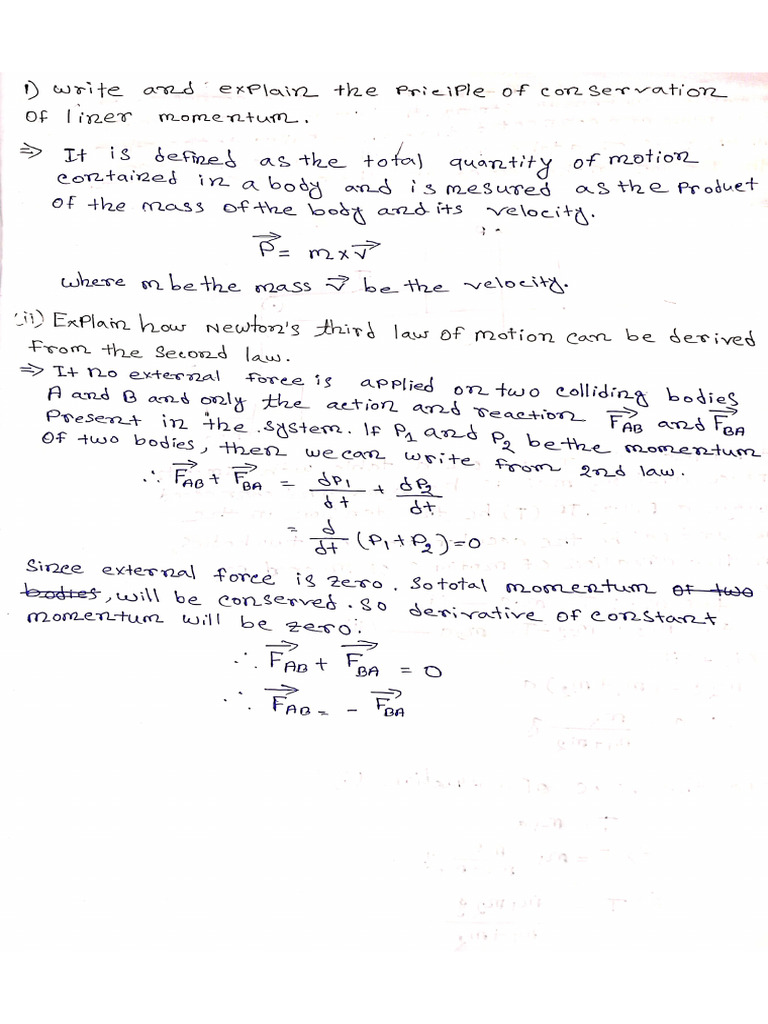 1) write and explain the priciple of conservation
of liner momentum.
⇒ It is defined as the total quantity of motion
contained in a body and is mesured as the product
of the mass of the body and its velocity.
P⃗ = m×v⃗
where m be the mass v⃗ be the velocity.
(ii) Explain how Newton's third law of motion can be derived
from the second law.
⇒ It no external force is applied on two colliding bodies
A and B and only the action and reaction F⃗AB and F⃗BA
Present in the system. If P₁ and P₂ be the momentum
of two bodies, then we can write from 2nd law.
∴ F⃗AB + F⃗BA = dP₁/dt + dP₂/dt
= d/dt (P₁+P₂)=0
Since external force is zero. So total momentum of two
bodies, will be conserved. so derivative of constant
momentum will be zero.
∴ F⃗AB + F⃗BA = 0
∴ F⃗AB = - F⃗BA